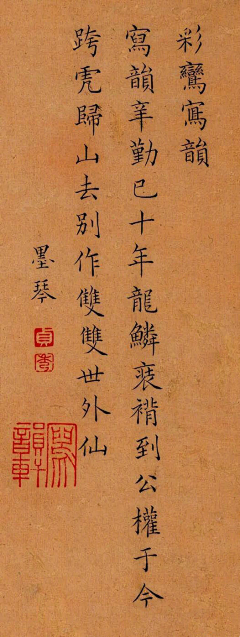 彩鸞寫韻
寫韻辛勤已十年龍鱗褙到公權于今
跨虎歸山去别作雙雙世外仙
墨琴
貞秀
寫韻軒